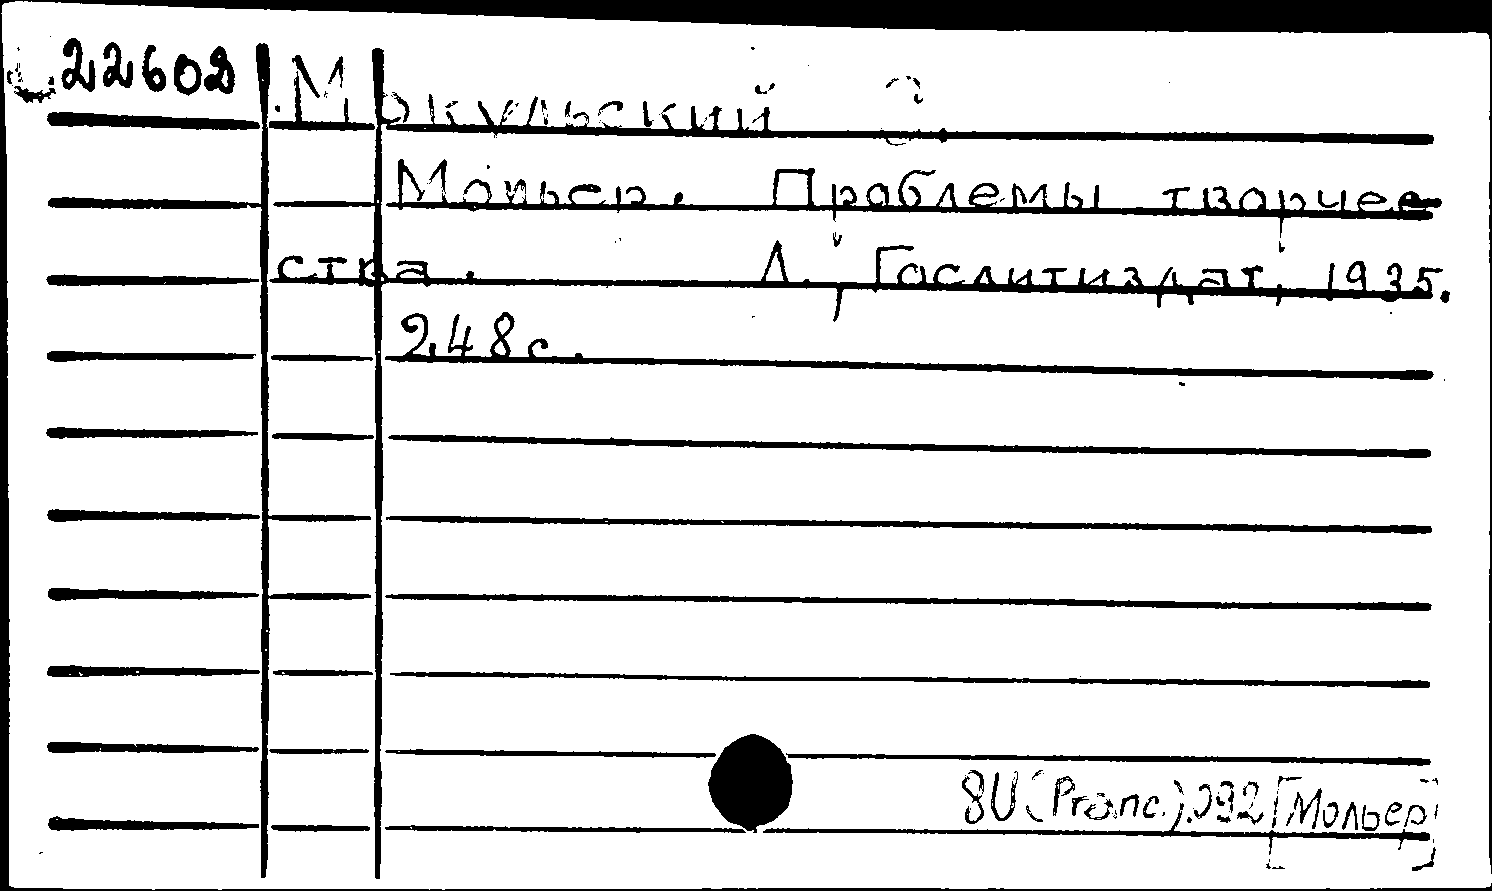 22602 Мокульский С.
Мольер. Проблемы творче-
ства. Л., Гослитиздат, 1935.
248 с.
8U(Franc.).092[Мольер]